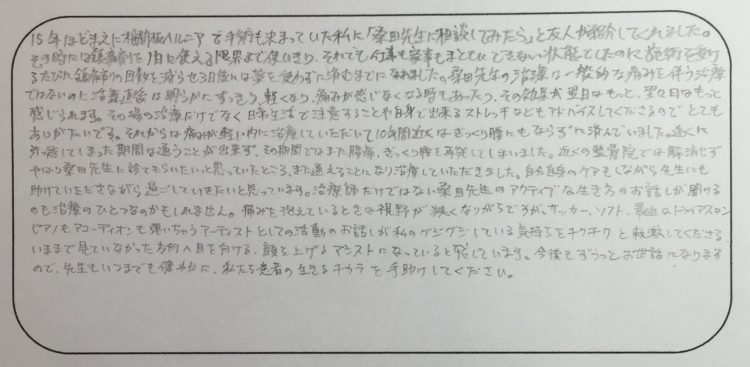 15年ほどまえに椎間板ヘルニアで手術も決まっていた私に「桑田先生に相談してみたら」と友人が紹介してくれました。
その時には鎮痛剤を1日に使える限界まで使いきり、それでも仕事も家事もまともにできない状態でしたのに施術を受け
るたびに鎮痛剤の回数を減らせ3日後には薬を使わずに済むまでになれました。桑田先生の治療は一般的な痛みを伴う治療
ではないのに治療直後は明らかにすっきり、軽くなり、痛みが感じなくなる時もあったり、その効果が翌日はもっと、翌々日はもっと
感じられます。その場の治療だけでなく日常生活で注意することや自身で出来るストレッチなどもアドバイスしてくださるのでとても
ありがたいです。それからは痛みが軽い内に治療していただいて10年間近くはぎっくり腰にもならずに済んでいました。遠くに
引っ越してしまった期間は通うことが出来ず、その期間ではまた腰痛、ぎっくり腰を再発してしまいました。近くの整骨院では解消せず
やはり桑田先生に診てもらいたいと思っていたところ、また通えることになり治療していただきました。自分自身のケアもしながら先生にも
助けていただきながら過ごしていきたいと思っています。治療師だけではない桑田先生のアクティブな生き方のお話しが聞ける
のも治療のひとつなのかもしれません。痛みを抱えているときは視野が狭くなりがちですが、サッカー、ソフト、最近はトライアスロン
ピアノもアコーディオンも弾いちゃうアーティストとしての活動のお話しが私のグジグジしている気持ちをチクチクと刺激してくださる
いままで見ていなかった方向へ目を向ける、顔を上げるアシストになっていると感じています。今後もずうっとお世話になります
ので、先生もいつまでも健やかに、私たち患者の生きるチカラを手助けしてください。